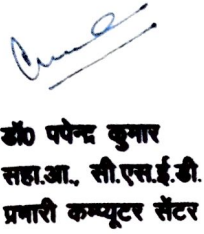 डॉ0 पपेन्द्र कुमार
सहा.आ., सी.एस.ई.डी.
प्रभारी कम्प्यूटर सेंटर